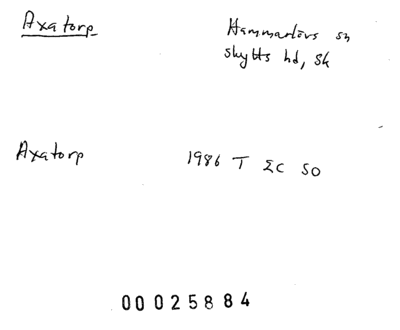 Axatorp
Hammarlövs sn
Skytts hd, Sk
Axatorp 1986 T ΣC SO
00025884